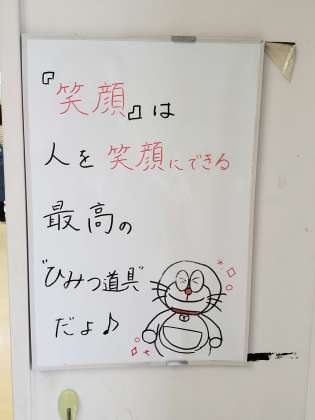 『笑顔』は
人を笑顔にできる
最高の
"ひみつ道具"
だよ♪